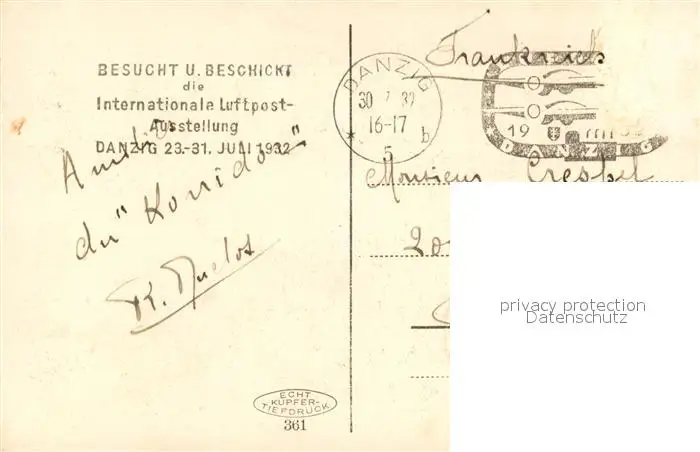 BESUCHT U. BESCHICKT
die
Internationale Luftpost-
Ausstellung
DANZIG 23.-31. JULI 1932
du "Korridor"
R.
ECHT
KUPFER-
TIEFDRUCK
361
DANZIG
30 7 32
16-17
* b
5
19
DANZIG
Frankreich
Monsieur Crespel
20
privacy protection
Datenschutz